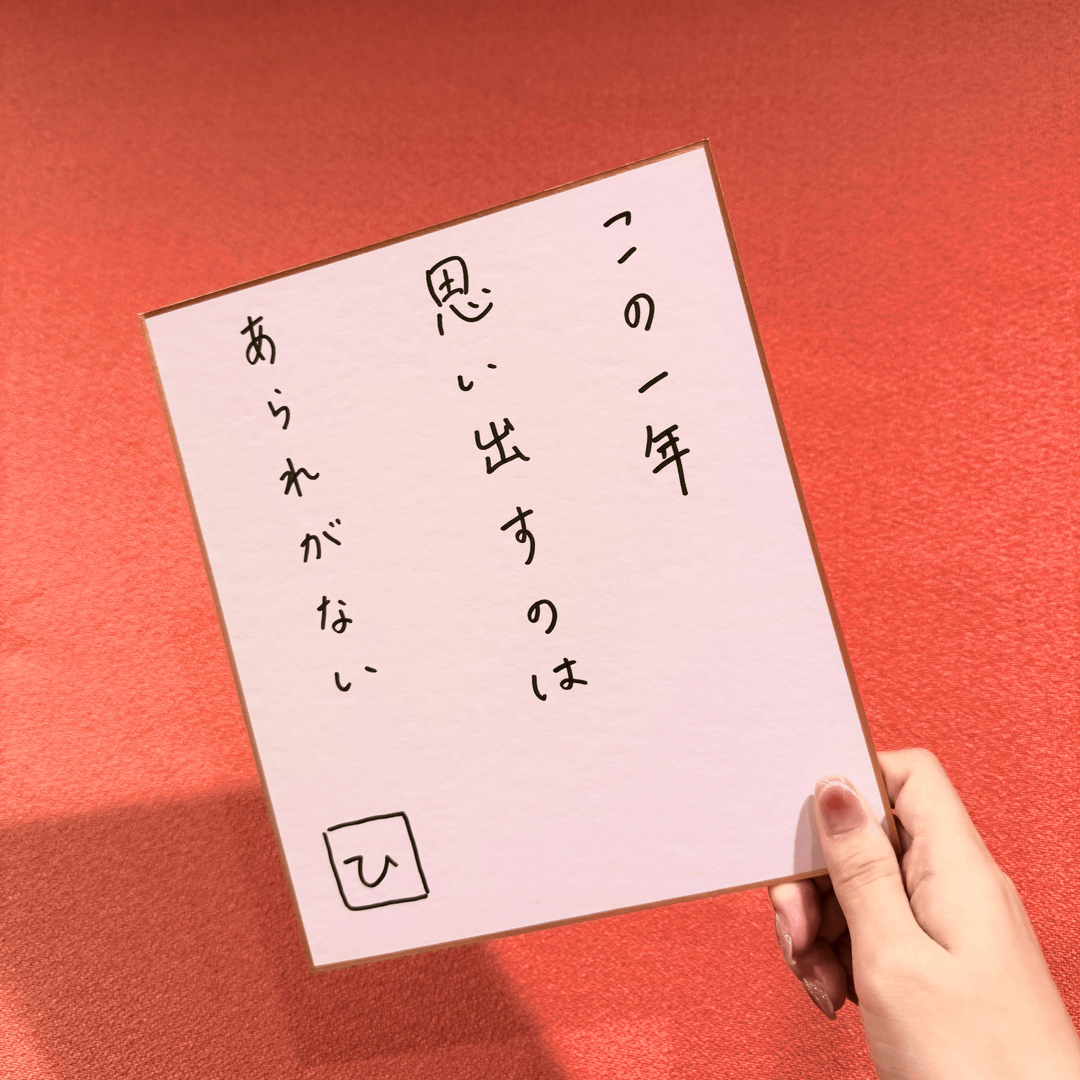 この一年
思い出すのは
あられがない
ひ